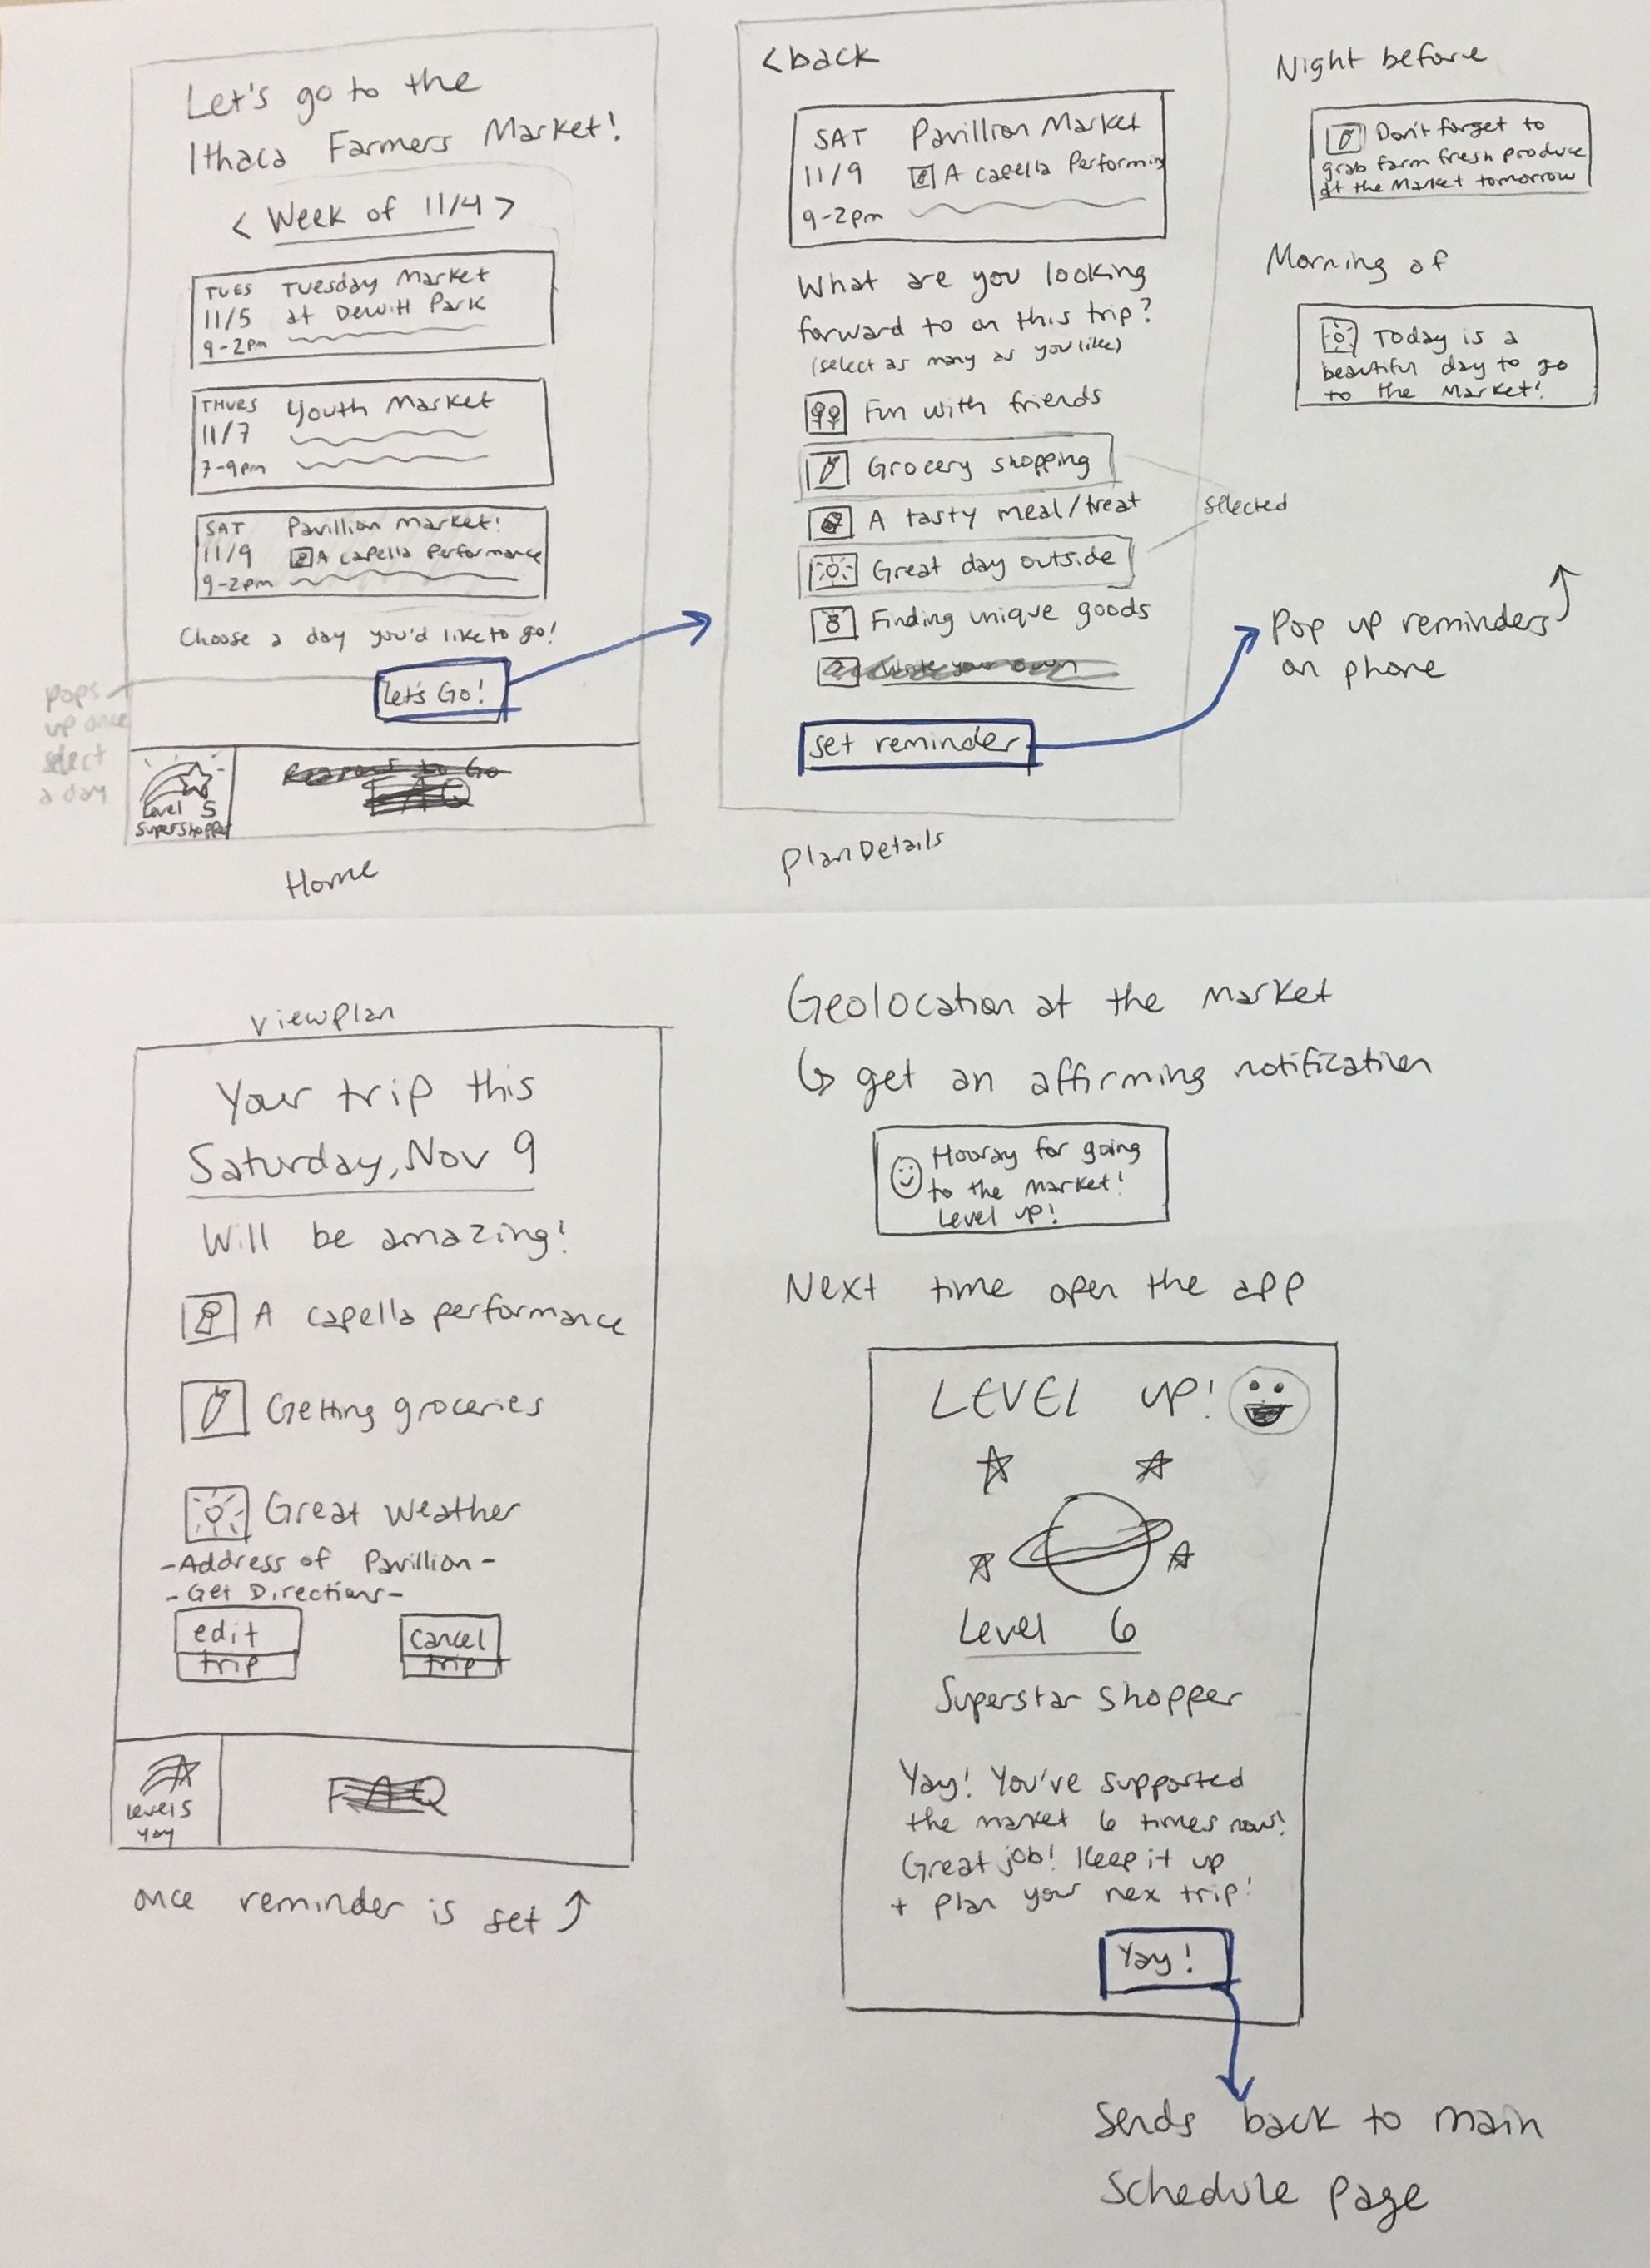 Let's go to the
Ithaca Farmers Market!
< Week of 11/4 >
TUES Tuesday Market
11/5 at Dewitt Park
9-2pm
THURS Youth Market
11/7
7-9pm
SAT Pavillion Market!
11/9 A capella Performance
9-2pm
Choose a day you'd like to go!
Let's Go!
pops
up once
select
a day
Level 5
Supershopper
Reasons to Go
FAQ
Home
<back
SAT Pavillion Market
11/9 A capella Performin
9-2pm
What are you looking
forward to on this trip?
(select as many as you like)
Fun with friends
Grocery shopping
A tasty meal/treat
Great day outside
Finding unique goods
Write your own
selected
set reminder
Plan Details
Night before
Don't forget to
grab farm fresh produce
at the Market tomorrow
Morning of
Today is a
beautiful day to go
to the Market!
Pop up reminders
on phone
View Plan
Your trip this
Saturday, Nov 9
Will be amazing!
A capella performance
Getting groceries
Great Weather
-Address of Pavillion-
-Get Directions-
edit
trip
cancel
trip
Level 5
yay
FAQ
once reminder is set
Geolocation at the market
get an affirming notification
Hooray for going
to the Market!
Level up!
Next time open the app
LEVEL UP!
Level 6
Superstar Shopper
Yay! You've supported
the market 6 times now!
Great job! Keep it up
+ plan your nex trip!
Yay!
Sends back to main
Schedule page